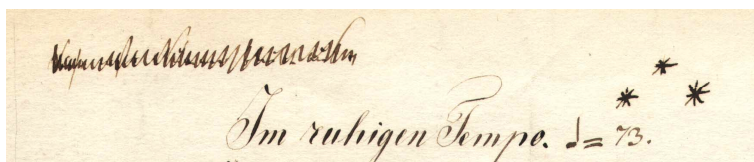 Im ruhigen Tempo. ♩= 73.